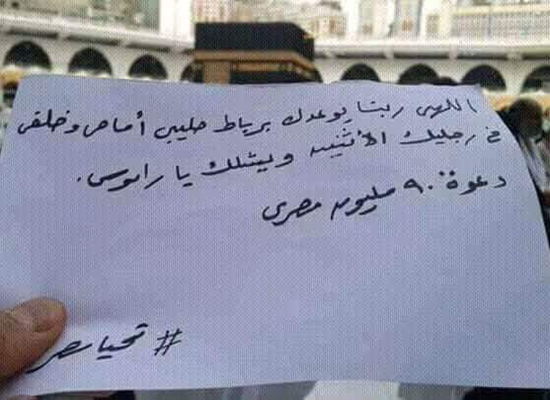 اللهى ربنا يوعدك برباط صليبى أمامى وخلفى
فى رجليك الأثنين ويشلك يا راموس.
دعوة ٩٠ مليون مصرى
# تحيا مصر